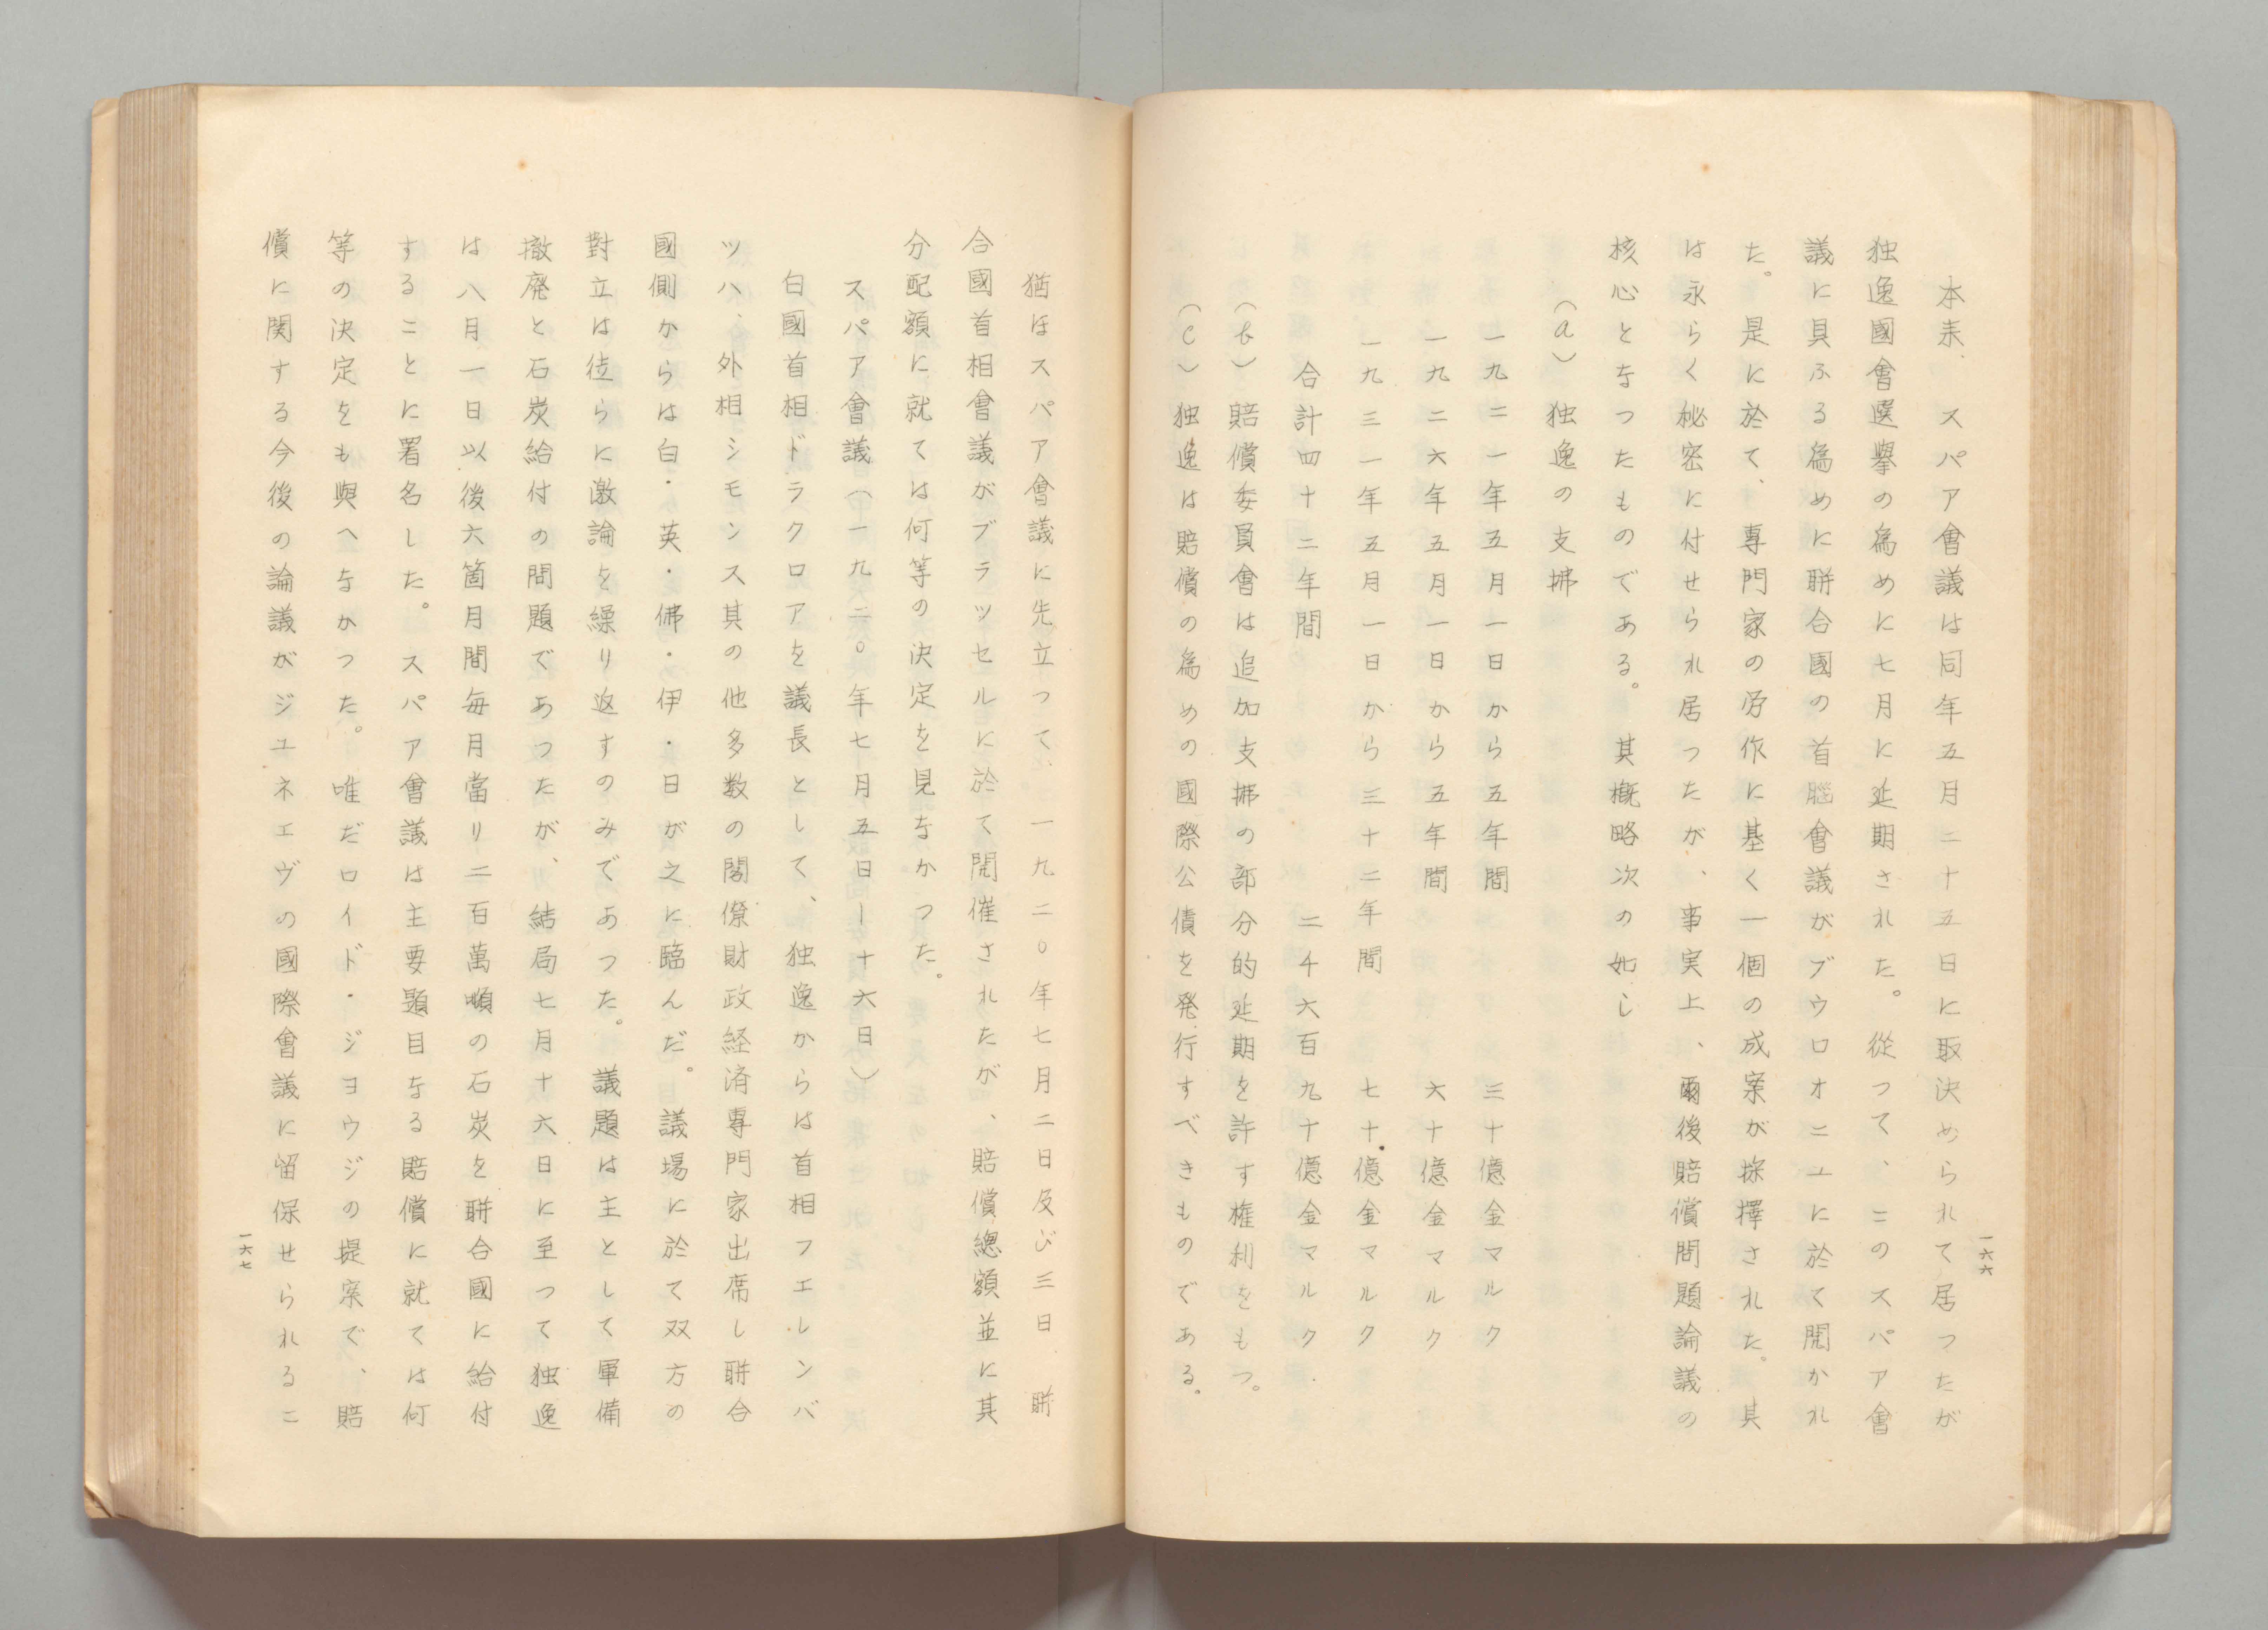 一六六
本来、スパア會議は同年五月二十五日に取決められて居つたが
独逸國會選擧の為めに七月に延期された。從つて、このスパア會
議に具ふる為めに聯合國の首腦會議がブウロオニユに於て開かれ
た。是に於て、専門家の労作に基く一個の成案が採擇された。其
は永らく秘密に付せられ居つたが、事実上、爾後賠償問題論議の
核心となつたものである。其概略次の如し
(a) 独逸の支拂
一九二一年五月一日から五年間 三十億金マルク
一九二六年五月一日から五年間 六十億金マルク
一九三一年五月一日から三十二年間 七十億金マルク
合計四十二年間 二千六百九十億金マルク
(b) 賠償委員會は追加支拂の部分的延期を許す権利をもつ。
(c) 独逸は賠償の為めの國際公債を発行すべきものである。
猶ほスパア會議に先立つて、一九二〇年七月二日及び三日、聯
合國首相會議がブラツセルに於て開催されたが、賠償總額並に其
分配額に就ては何等の決定を見なかつた。
スパア會議(一九二〇年七月五日ー十六日)
白國首相ドラクロアを議長として、独逸からは首相フエレンバ
ツハ、外相シモンス其の他多数の閣僚財政経済専門家出席し聯合
國側からは白・英・佛・伊・日が之に臨んだ。議場に於て双方の
對立は徒らに激論を繰り返すのみであつた。議題は主として軍備
撤廃と石炭給付の問題であつたが、結局七月十六日に至つて独逸
は八月一日以後六箇月間毎月當り二百萬噸の石炭を聯合國に給付
することに署名した。スパア會議は主要題目なる賠償に就ては何
等の決定をも與へなかつた。唯だロイド・ジヨウジの提案で、賠
償に関する今後の論議がジユネエヴの國際會議に留保せられるこ
一六七